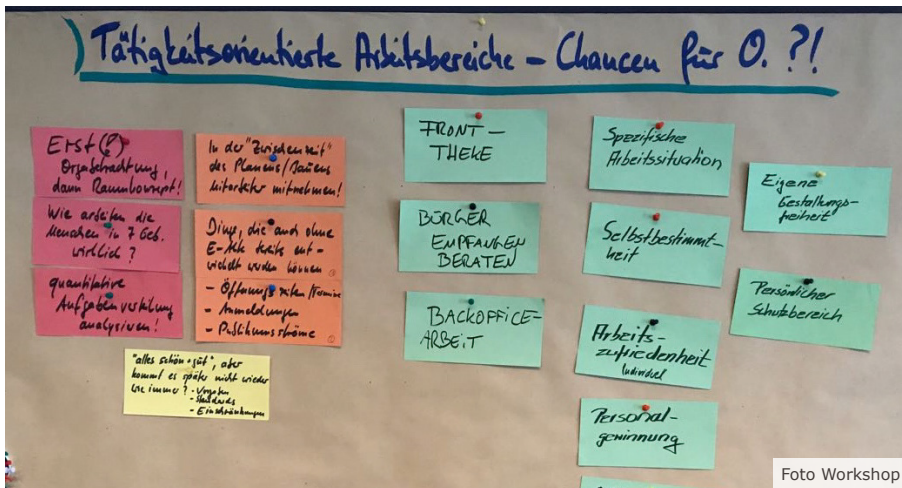 Tätigkeitsorientierte Arbeitsbereiche – Chancen für O. ?!
Erst(?)
Orgabetrachtung,
dann Raumkonzept!
Wie arbeiten die
Menschen in 7 Geb.
wirklich ?
quantitative
Aufgabenverteilung
analysieren!
In der "Zwischenzeit"
des Planens/Bauens
Mitarbeiter mitnehmen!
Dinge, die auch ohne
E-Akte bereits ent-
wickelt werden können
- Öffnungszeiten/Termine
- Anmeldungen
- Publikumsströme
"alles schön + gut", aber
kommt es später nicht wieder
wie immer? - Vorgaben
- Standards
- Einschränkungen
FRONT-
THEKE
BÜRGER
EMPFANGEN
BERATEN
BACKOFFICE-
ARBEIT
Spezifische
Arbeitssituation
Selbstbestimmt-
heit
Arbeits-
zufriedenheit
Individuell
Personal-
gewinnung
Eigene
Gestaltungs-
freiheit
Persönlicher
Schutzbereich
Foto Workshop